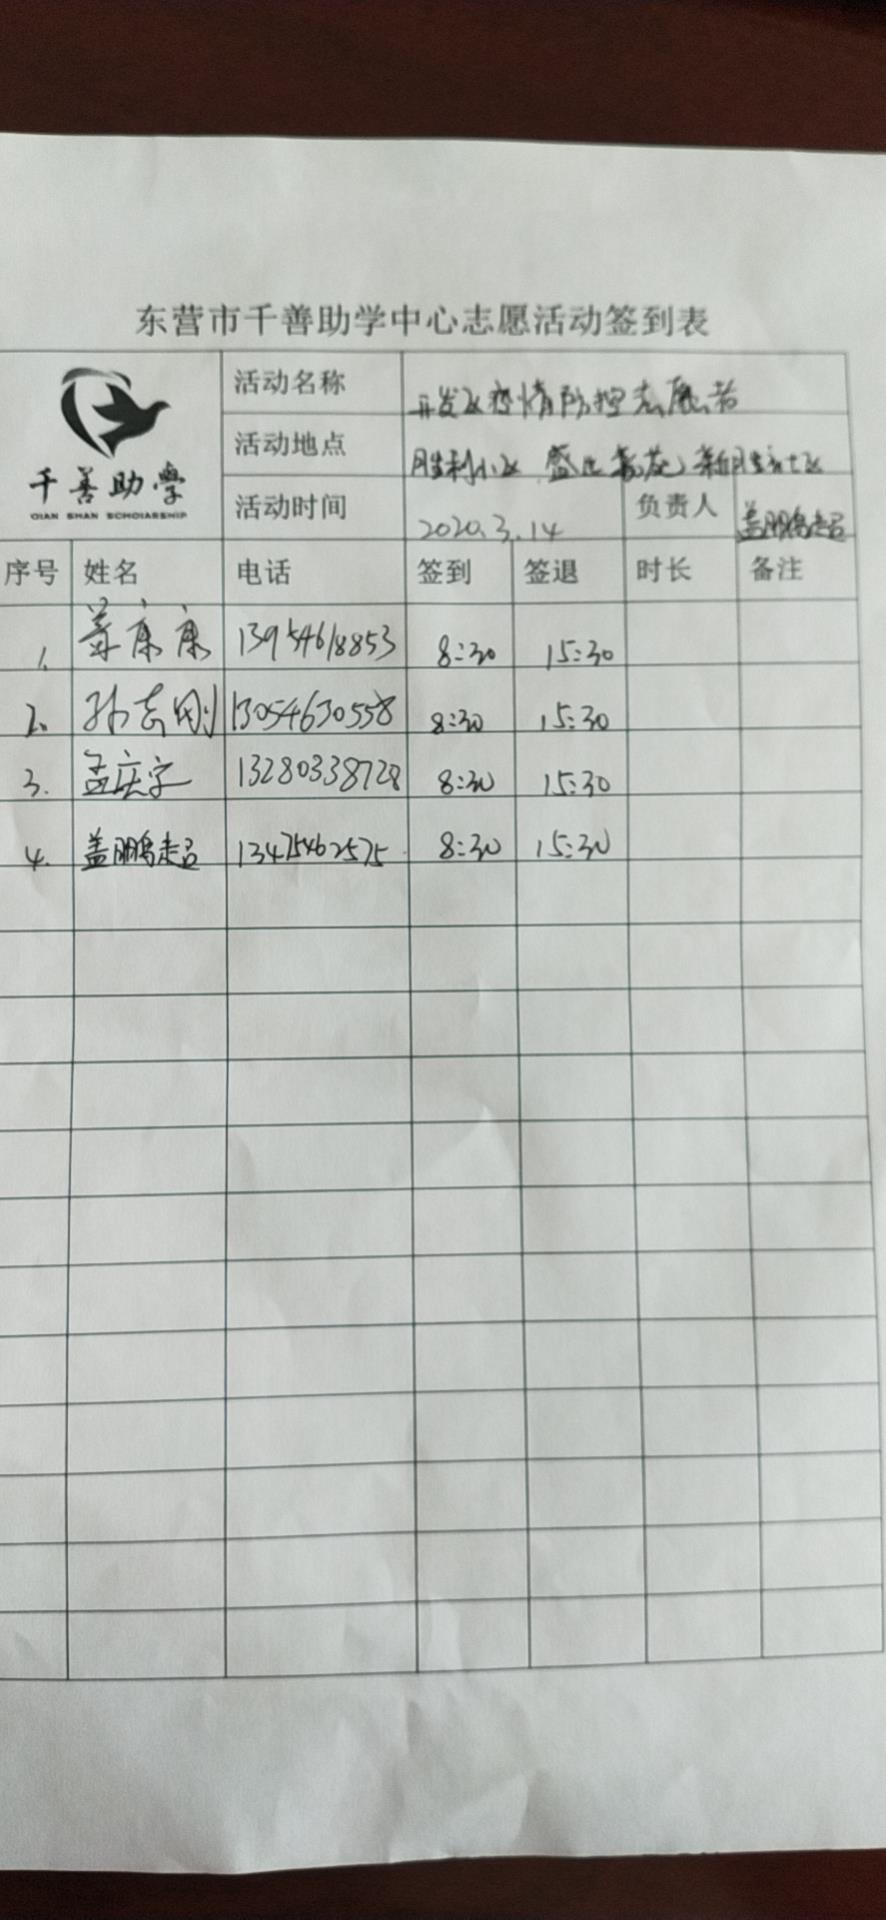 东营市千善助学中心志愿活动签到表
千善助学
QIAN SHAN SCHOIARSHIP
活动名称 开发区疫情防控志愿者
活动地点 胜利小区 盛世
活动时间 2020.3.14 负责人 盖鹏超
序号 姓名 电话 签到 签退 时长 备注
1. 康康 13954618853 8:30 15:30
2. 孙志刚 13054630558 8:30 15:30
3. 孟庆宇 13280338728 8:30 15:30
4. 盖鹏超 13475462575 8:30 15:30